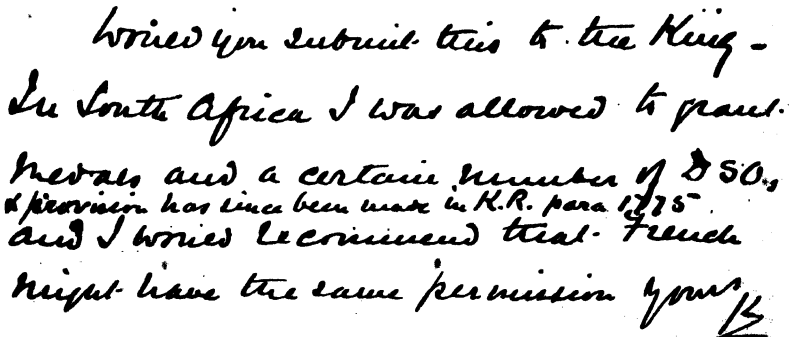 Would you submit this to the King -
In South Africa I was allowed to grant
medals and a certain number of DSO,
& provision has since been made in K.R. para 1775
and I would recommend that French
might have the same permission yours
K